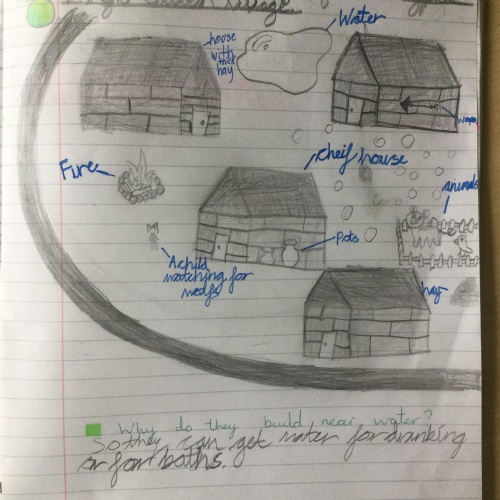 Water
house
with
thick
hay
Fire
cheif house
animals
Pots
A child
watching for
wolfs
hay
Why do they build near water?
So they can get water for drinking
or for baths.